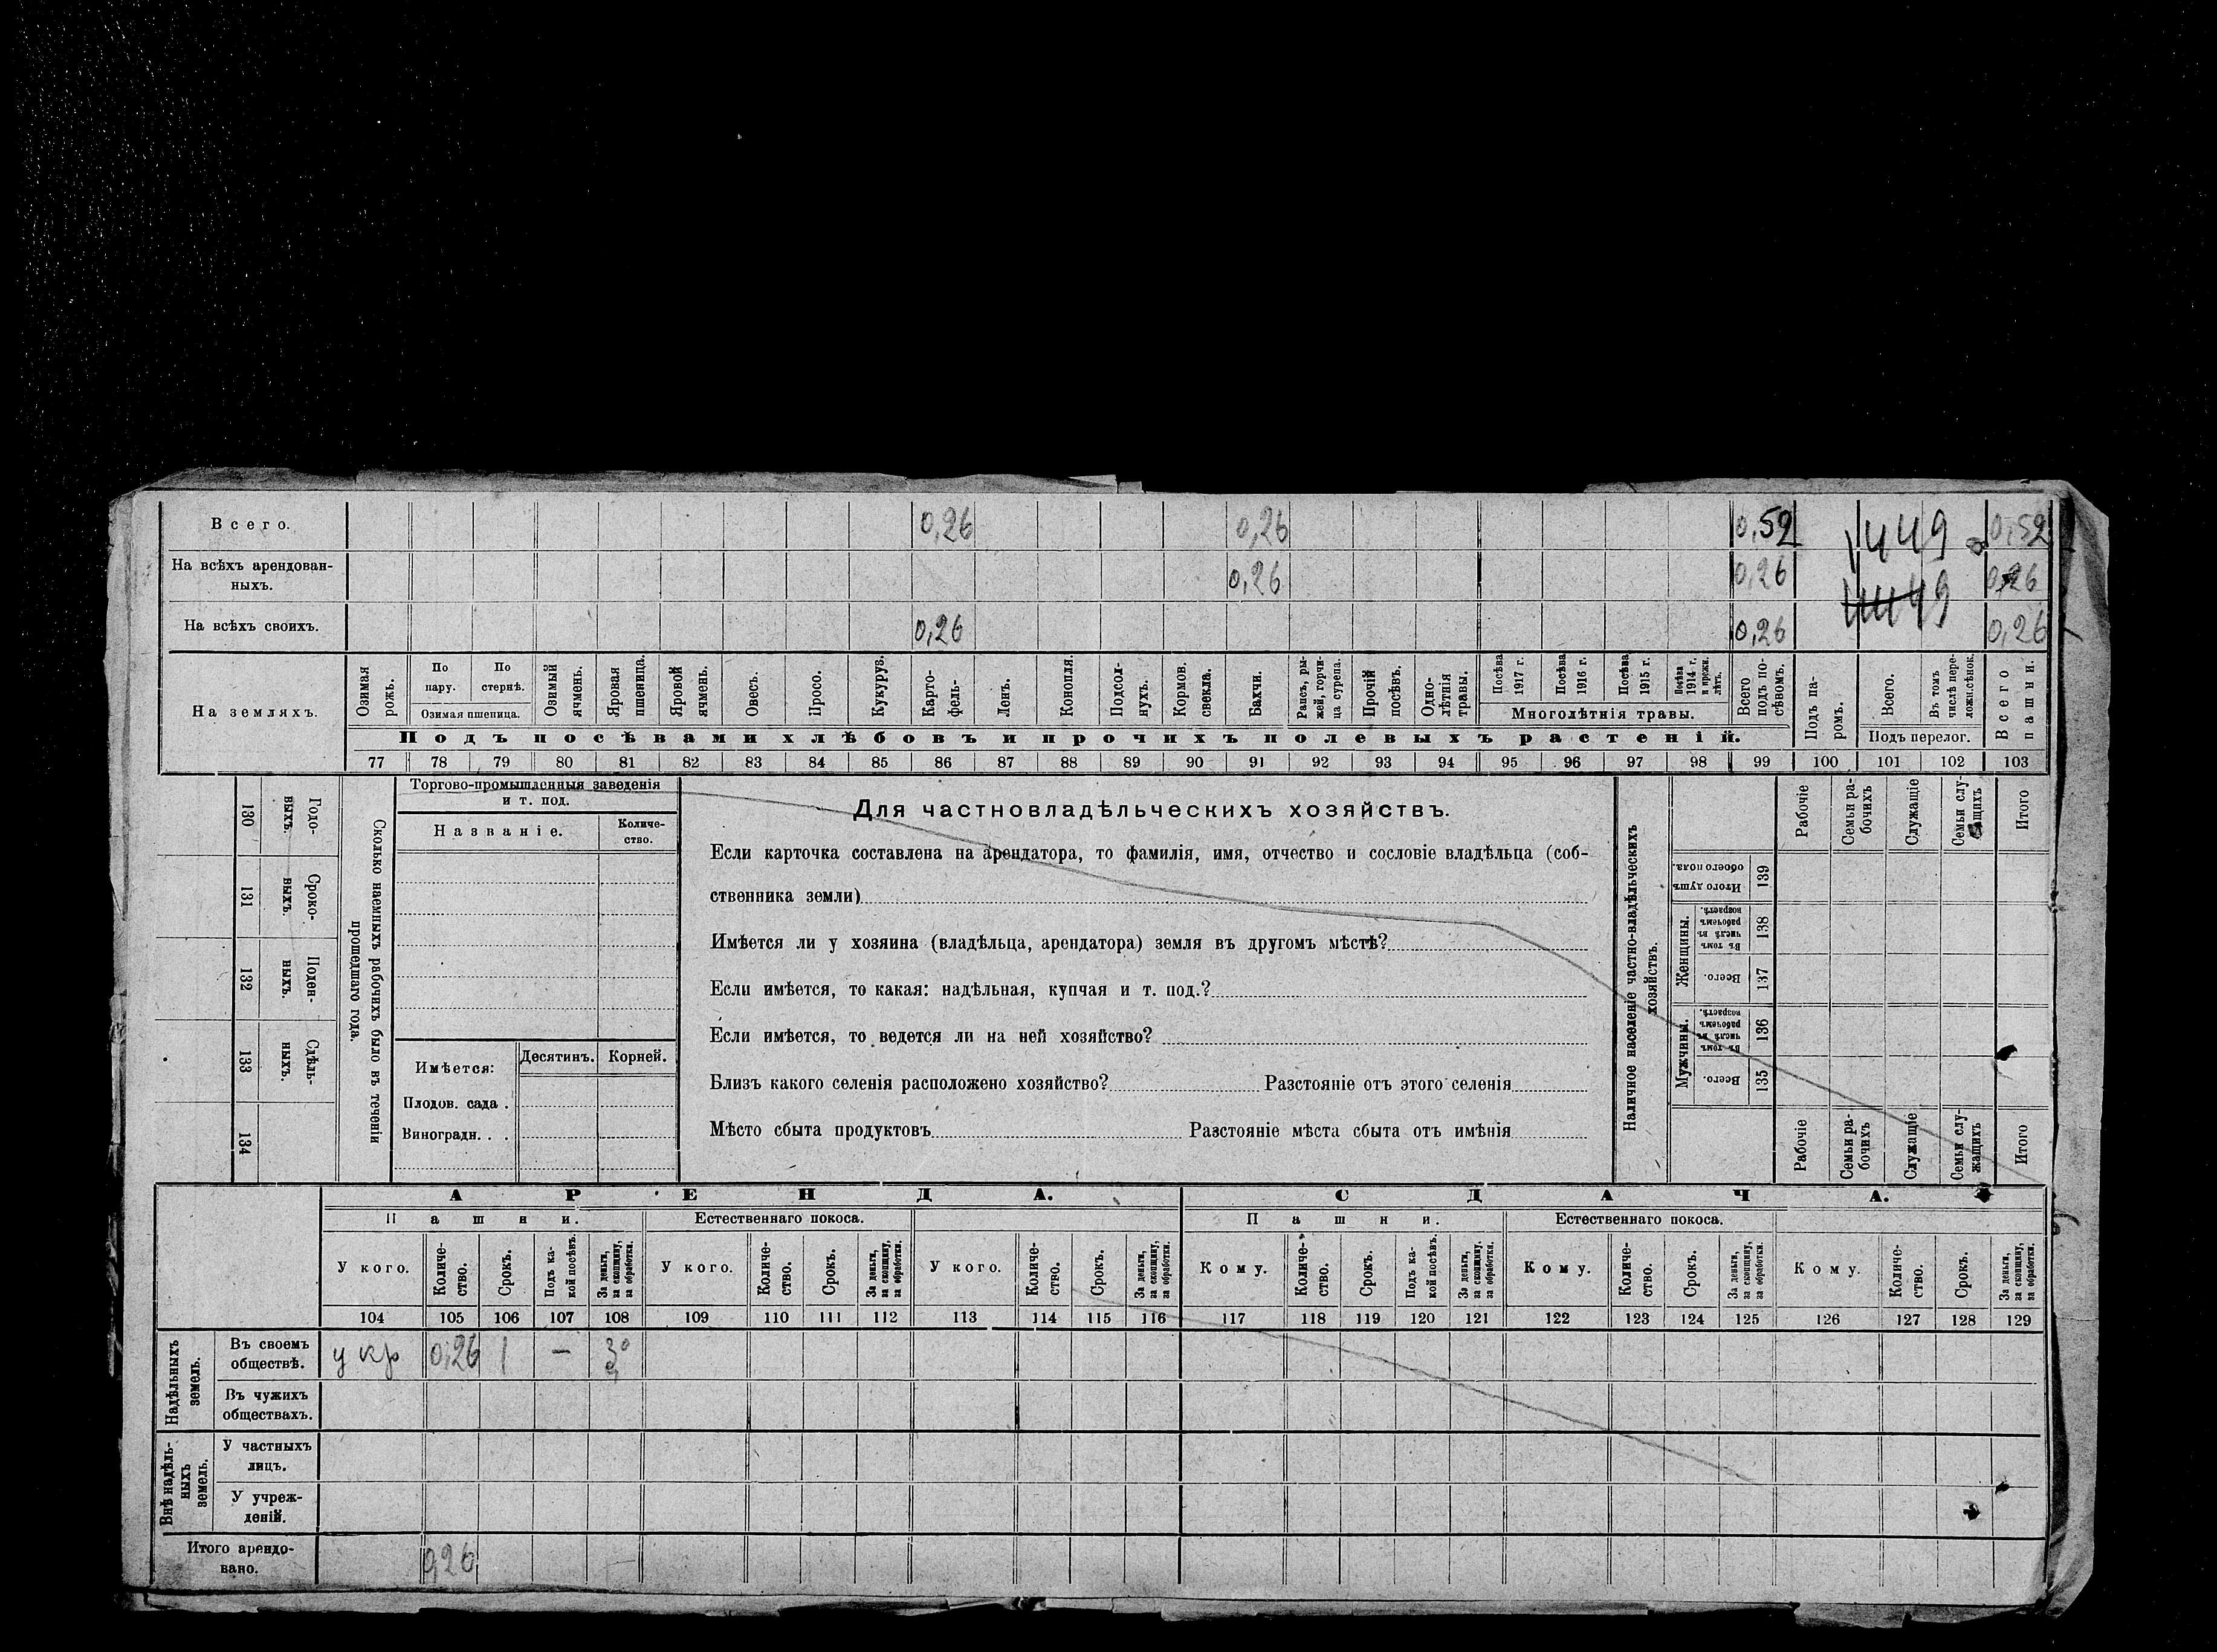 Всего. 0,26 0,26 0,52 0,52
1449
На всѣхъ арендован-
ныхъ. 0,26 0,26 0,26
На всѣхъ своихъ. 0,26 0,26 0,26
На земляхъ.
Озимая рожь.
По пару.
По стернѣ.
Озимая пшеница.
Озимый ячмень.
Яровая пшеница.
Яровой ячмень.
Овесъ.
Просо.
Кукуруз.
Карто-
фель.
Ленъ.
Конопля.
Подсол-
нухъ.
Кормов. свекла.
Бахчи.
Рапсъ, ры-
жей, горчи-
ца сурепа.
Прочій посѣвъ.
Одно-
лѣтнія травы.
Посѣва 1917 г.
Посѣва 1916 г.
Посѣва 1915 г.
Посѣва 1914 г. и прежн. лѣтъ.
Многолѣтнія травы.
Всего подъ по-
сѣвомъ.
Подъ па-
ромъ.
Всего.
Въ томъ числѣ пере-
ложн.сѣнок.
Подъ перелог.
Всего пашни.
Подъ посѣвами хлѣбовъ и прочихъ полевыхъ растеній.
77 78 79 80 81 82 83 84 85 86 87 88 89 90 91 92 93 94 95 96 97 98 99 100 101 102 103
130 131 132 133 134
Годо-
выхъ.
Сроко-
выхъ.
Поден-
ныхъ.
Сдѣль-
ныхъ.
Сколько наемныхъ рабочихъ было въ теченіи
прошедшаго года.
Торгово-промышленныя заведенія
и т. под.
Названіе.
Количе-
ство.
Имѣется: Десятинъ. Корней.
Плодов. сада .
Виноградн. . .
Для частновладѣльческихъ хозяйствъ.
Если карточка составлена на арендатора, то фамилія, имя, отчество и сословіе владѣльца (соб-
ственника земли)
Имѣется ли у хозяина (владѣльца, арендатора) земля въ другомъ мѣстѣ?
Если имѣется, то какая: надѣльная, купчая и т. под.?
Если имѣется, то ведется ли на ней хозяйство?
Близъ какого селенія расположено хозяйство? Разстояніе отъ этого селенія
Мѣсто сбыта продуктовъ Разстояніе мѣста сбыта отъ имѣнія
Наличное населеніе частно-владѣльческихъ
хозяйствъ.
Рабочіе
Семьи ра-
бочихъ
Служащіе
Семьи слу-
жащихъ
Итого
Итого душъ обоего пола. 139
Женщины.
Въ томъ числѣ въ рабочемъ возрастѣ. 138
Всего. 137
Мужчины.
Въ томъ числѣ въ рабочемъ возрастѣ. 136
Всего. 135
Рабочіе
Семьи ра-
бочихъ
Служащіе
Семьи слу-
жащихъ
Итого
АРЕНДА. СДАЧА.
Пашни. Естественнаго покоса. Пашни. Естественнаго покоса.
У кого.
Количе-
ство.
Срокъ.
Подъ ка-
кой посѣвъ.
За деньги,
за скопщину,
за обработки.
У кого.
Количе-
ство.
Срокъ.
За деньги,
за скопщину,
за обработки.
У кого.
Количе-
ство.
Срокъ.
За деньги,
за скопщину,
за обработки.
Кому.
Количе-
ство.
Срокъ.
Подъ ка-
кой посѣвъ.
За деньги,
за скопщину,
за обработки.
Кому.
Количе-
ство.
Срокъ.
За деньги,
за скопщину,
за обработки.
Кому.
Количе-
ство.
Срокъ.
За деньги,
за скопщину,
за обработки.
104 105 106 107 108 109 110 111 112 113 114 115 116 117 118 119 120 121 122 123 124 125 126 127 128 129
Надѣльныхъ
земель.
Въ своемъ
обществѣ. у кр 0,26 1 —
Въ чужихъ
обществахъ.
Внѣ надѣль-
ныхъ
земель.
У частныхъ
лицъ.
У учреж-
деній.
Итого арендо-
вано. 0,26